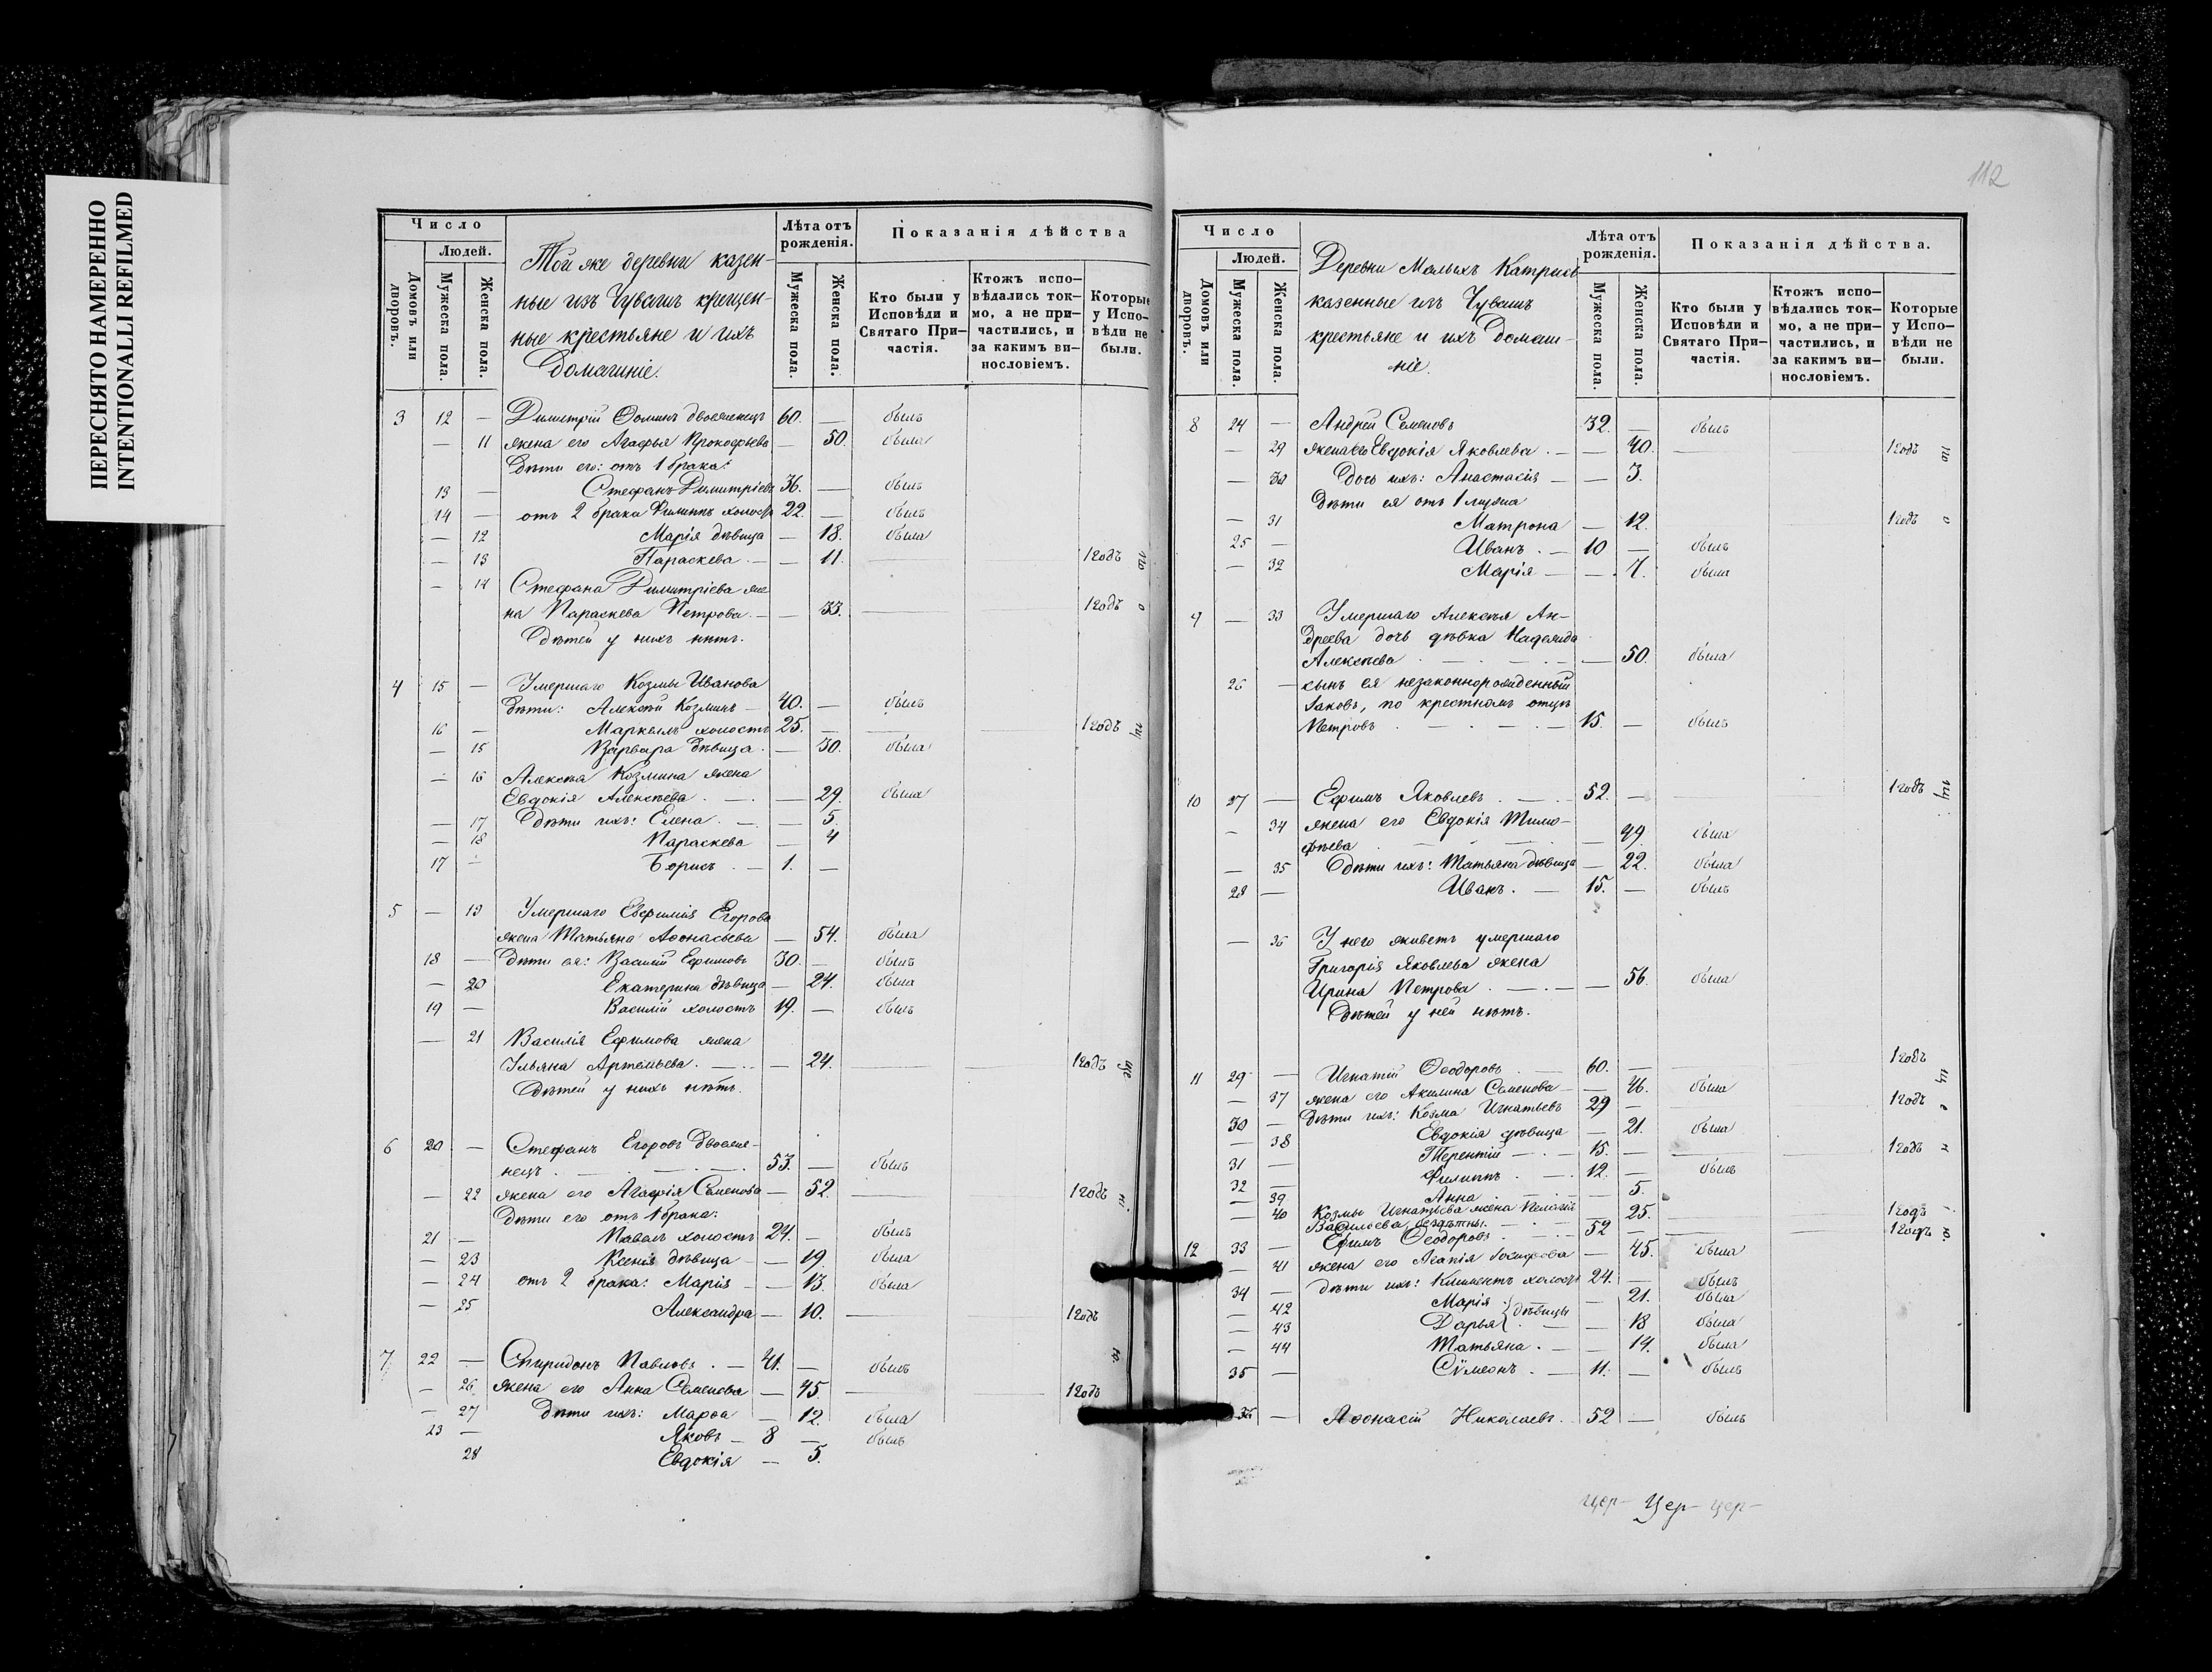 ПЕРЕСНЯТО НАМЕРЕННО
INTENTIONALLI REFILMED
Число
Людей.
Домовъ или дворовъ.
Мужеска пола.
Женска пола.
Той же деревни казен-
ные изъ Чувашъ крещен-
ные крестьяне и ихъ
Домашніе.
Лѣта отъ рожденія.
Мужеска пола.
Женска пола.
Показанія дѣйства
Кто были у Исповѣди и Святаго При-частія.
Ктожъ испо-вѣдались ток-мо, а не при-частились, и за какимъ ви-нословіемъ.
Которые у Испо-вѣди не были.
3 12 — Димитрій Ѳоминъ двоеженецъ 60. — былъ
— 11 жена его Агафья Прокофьева — 50. была
Дѣти его: отъ 1 брака:
13 — Стефанъ Димитріевъ 36. — былъ
14 — отъ 2 брака Филиппъ холостъ 22. — былъ
— 12 Марія дѣвица — 18. была
— 13 Параскева — 11. 1 годъ
— 14 Стефана Димитріева же-
на Параскева Петрова — 33. 1 годъ
Дѣтей у нихъ нѣтъ.
4 15 — Умершаго Козмы Иванова
дѣти: Алексѣй Козминъ — 40. — былъ
16 — Маркелъ холостъ 25. — 1 годъ
— 15 Варвара дѣвица — 30. была
— 16 Алексѣя Козмина жена
Евдокія Алексѣева — 29. была
— 17 Дѣти ихъ: Елена — 5.
— 18 Параскева — 4
17 — Борисъ — 1. —
5 — 19 Умершаго Евфимія Егорова
жена Татьяна Аѳонасьева — 54. была
18 — Дѣти ея: Василій Ефимовъ 30. — былъ
— 20 Екатерина дѣвица — 24. была
19 — Василій холостъ 19. — былъ
— 21 Василія Ефимова жена
Ульяна Артемьева — 24. 1 годъ
Дѣтей у нихъ нѣтъ.
6 20 — Стефанъ Егоровъ двоеже-
нецъ 53. — былъ
— 22 жена его Агафія Семенова — 52. 1 годъ
Дѣти его отъ 1 брака:
21 — Павелъ холостъ 24. — былъ
— 23 Ксенія дѣвица — 19 была
— 24 отъ 2 брака: Марія — 13. была
— 25 Александра — 10. 1 годъ
7 22 — Спиридонъ Павловъ — 41. — былъ
— 26 жена его Анна Семенова — 45. 1 годъ
— 27 Дѣти ихъ: Марѳа — 12 была
23 — Яковъ — 8 — былъ
28 Евдокія — 5.
112
Число
Людей.
Домовъ или дворовъ.
Мужеска пола.
Женска пола.
Деревни Малыхъ
казенные изъ Чувашъ
крестьяне и ихъ Домаш-
ніе.
Лѣта отъ рожденія.
Мужеска пола.
Женска пола.
Показанія дѣйства.
Кто были у Исповѣди и Святаго При-частія.
Ктожъ испо-вѣдались ток-мо, а не при-частились, и за какимъ ви-нословіемъ.
Которые у Испо-вѣди не были.
8 24 — Андрей Семеновъ 32. — былъ
— 29 жена его Евдокія Яковлева — 40. 1 годъ
— 30 Дочь ихъ: Анастасія — 3.
Дѣти ея отъ 1 мужа
— 31 Матрона — 12. 1 годъ
25 — Иванъ — 10 — былъ
— 32 Марія — 7. была
9 — 33 Умершаго Алексѣя Ан-
дреева дочь дѣвка Надежда
Алексѣева — 50. была
26 — сынъ ея незаконнорожденный
Іаковъ, по крестномъ отцѣ
Петровъ — 15. — былъ
10 27 — Ефимъ Яковлевъ 52. — 1 годъ
— 34 жена его Евдокія Тимо-
фѣева — 49. была
— 35 Дѣти ихъ: Татьяна дѣвица — 22. была
28 — Иванъ — 15. — былъ
— 36 У него живетъ умершаго
Григорія Яковлева жена
Ирина Петрова — 56. была
Дѣтей у ней нѣтъ.
11 29 — Игнатій Ѳеодоровъ — 60. — 1 годъ
— 37 жена его Акилина Семенова — 46. была
30 — Дѣти ихъ: Козма Игнатьевъ 29 — 1 годъ
— 38 Евдокія дѣвица — 21. была
31 — Терентій — 15. — 1 годъ
32 — Филиппъ — 12. — былъ
— 39 Анна — 5.
— 40 Козмы Игнатьева жена Пелагія
Васильева, бездѣтны. — 25. 1 годъ
12 33 — Ефимъ Ѳеодоровъ 52 — 1 годъ
— 41 жена его Агапія Іосифова — 45. была
34 — дѣти ихъ: Климентъ холостъ 24. — былъ
— 42 Марія } дѣвицы — 21. была
— 43 Дарья } — 18 была
— 44 Татьяна — 14. была
35 — Сѵмеонъ — 11. — былъ
36 — Аѳонасій Николаевъ 52 — былъ
Цер- Цер- цер-